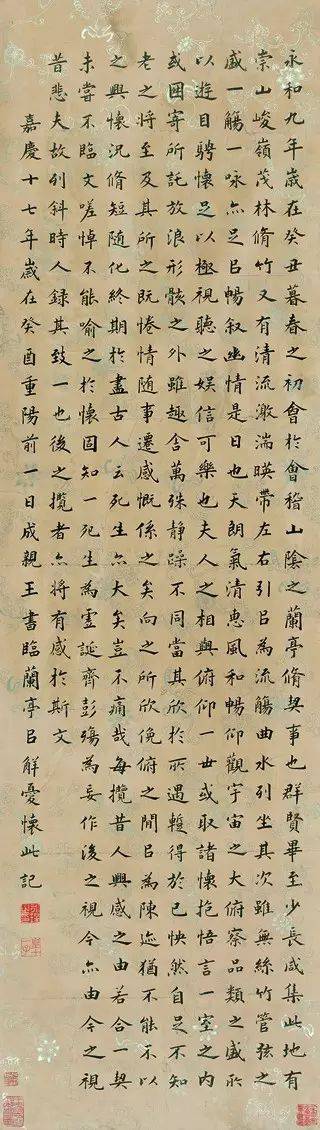 永和九年歲在癸丑暮春之初會於會稽山陰之蘭亭脩契事也群賢畢至少長咸集此地有
崇山峻嶺茂林脩竹又有清流激湍暎帶左右引㠯為流觴曲水列坐其次雖無絲竹管弦之
盛一觴一咏亦足㠯暢叙幽情是日也天朗氣清惠風和暢仰觀宇宙之大俯察品類之盛所
以遊目騁懷足以極視聽之娛信可樂也夫人之相與俯仰一世或取諸懷抱悟言一室之内
或因寄所託放浪形骸之外雖趣舍萬殊静躁不同當其欣於所遇暫得於己怏然自足不知
老之將至及其所之既惓情随事遷感慨係之矣向之所欣俛俯之間㠯為陳迹猶不能不以
之興懷況脩短随化終期於盡古人云死生亦大矣豈不痛哉每攬昔人興感之由若合一契
未嘗不臨文嗟悼不能喻之於懷固知一死生為虛誕齊彭殤為妄作後之視今亦由今之視
昔悲夫故列斜時人録其致一也後之攬者亦將有感於斯文
嘉慶十七年歲在癸酉重陽前一日成親王書臨蘭亭㠯解憂懷此記